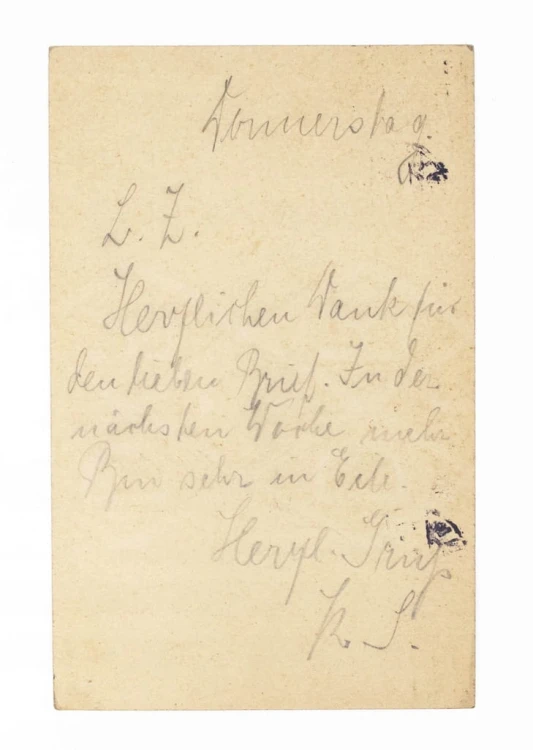 Donnerstag.
L. Z.
Herzlichen Dank für
den lieben Brief. In der
nächsten Woche mehr
Bin sehr in Eile.
Herzl. Gruß
K. S.